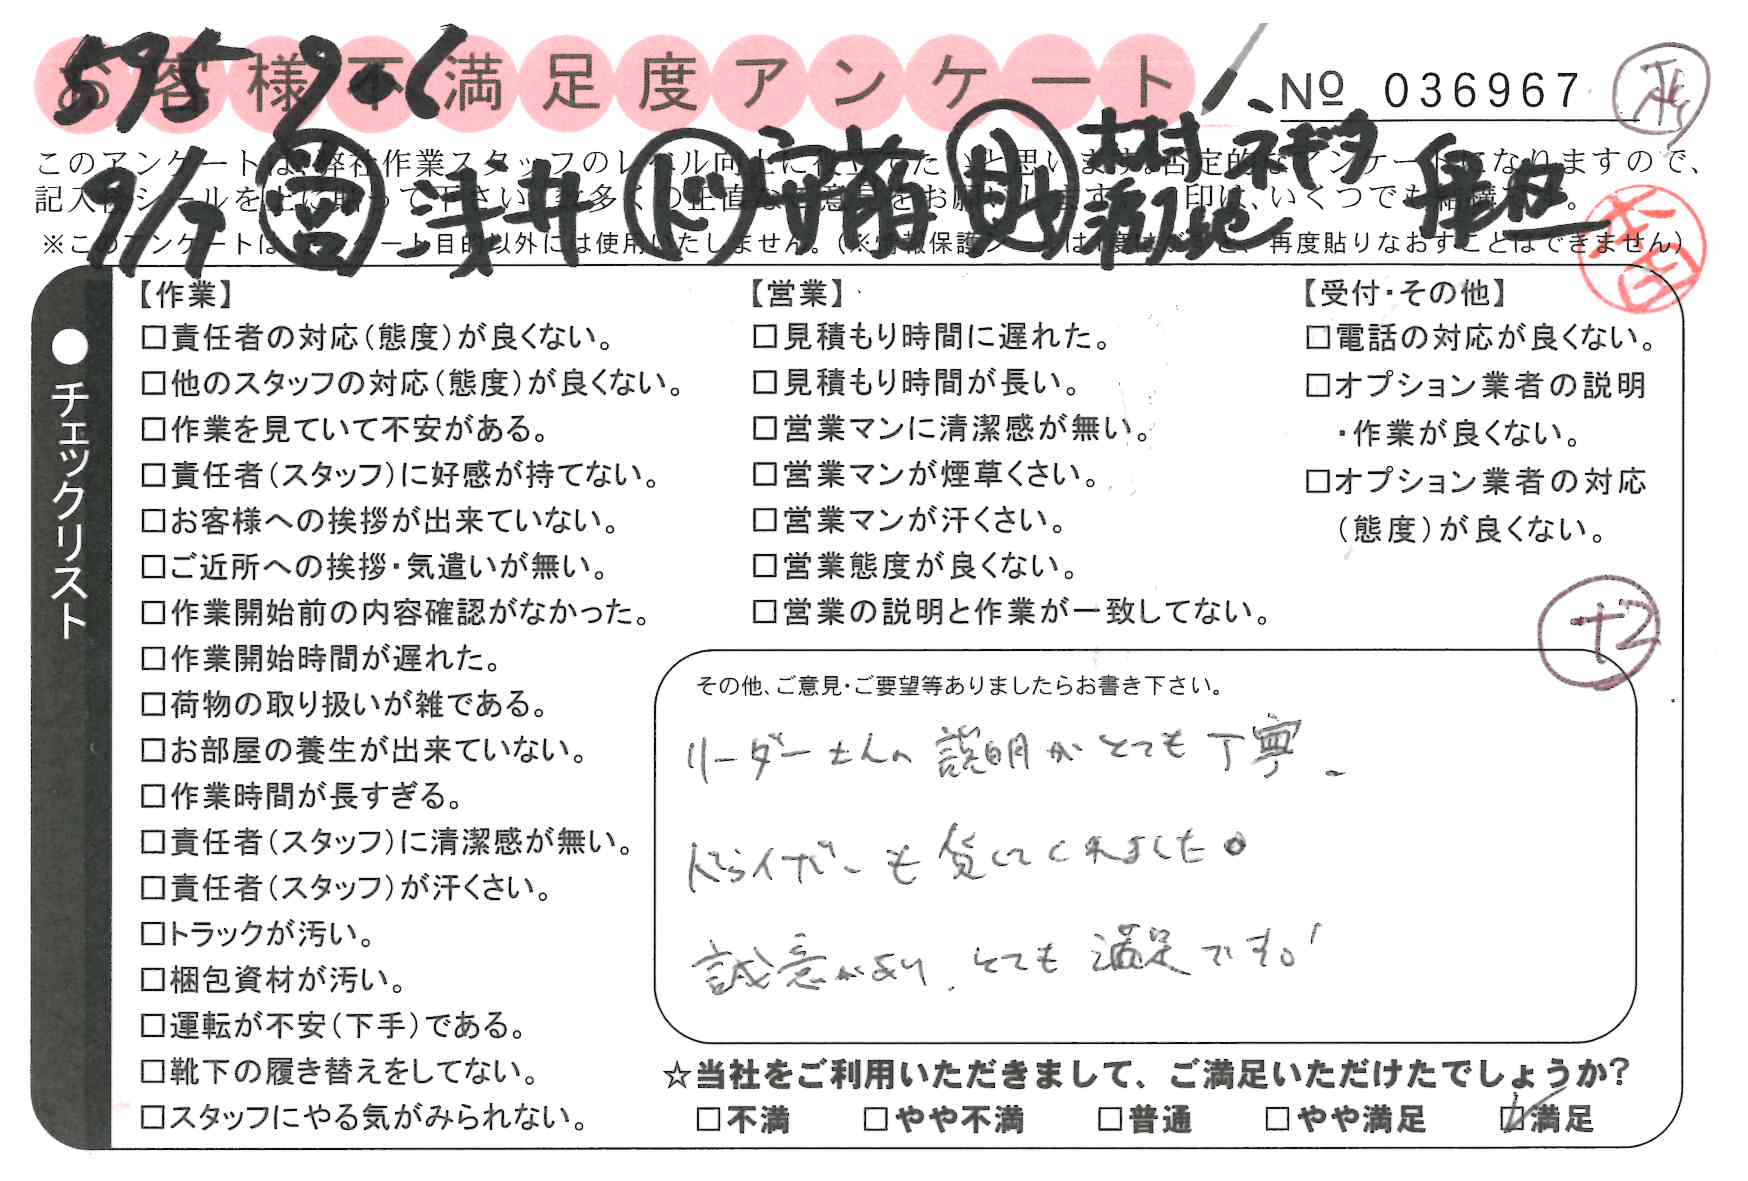 595 9.6
お客様不満足度アンケート
№ 036967
このアンケートは、弊社作業スタッフのレベル向上に役立てたいと思います。否定的なアンケートになりますので、
9/7 営 浅井 ド 助 木村
記入後シールを上に貼って下さい。数多くの正直なご意見をお願いします。 印は、いくつでも結構です。
※このアンケートは、アンケート目的以外には使用いたしません。(※情報保護シールは1度はがすと、再度貼りなおすことはできません)
●チェックリスト
【作業】
□責任者の対応(態度)が良くない。
□他のスタッフの対応(態度)が良くない。
□作業を見ていて不安がある。
□責任者(スタッフ)に好感が持てない。
□お客様への挨拶が出来ていない。
□ご近所への挨拶・気遣いが無い。
□作業開始前の内容確認がなかった。
□作業開始時間が遅れた。
□荷物の取り扱いが雑である。
□お部屋の養生が出来ていない。
□作業時間が長すぎる。
□責任者(スタッフ)に清潔感が無い。
□責任者(スタッフ)が汗くさい。
□トラックが汚い。
□梱包資材が汚い。
□運転が不安(下手)である。
□靴下の履き替えをしてない。
□スタッフにやる気がみられない。
【営業】
□見積もり時間に遅れた。
□見積もり時間が長い。
□営業マンに清潔感が無い。
□営業マンが煙草くさい。
□営業マンが汗くさい。
□営業態度が良くない。
□営業の説明と作業が一致してない。
【受付・その他】
□電話の対応が良くない。
□オプション業者の説明
・作業が良くない。
□オプション業者の対応
(態度)が良くない。
+2
その他、ご意見・ご要望等ありましたらお書き下さい。
リーダーさんの説明がとても丁寧。
ドライバーも笑してくれました。
誠意があり、とても満足です。!
☆当社をご利用いただきまして、ご満足いただけたでしょうか?
□不満 □やや不満 □普通 □やや満足 ☑満足